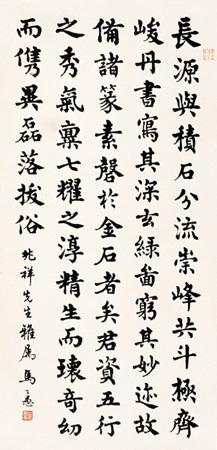 長源與積石分流崇峰共斗極齊
峻丹書寫其深玄綠啚窮其妙迹故
備諸篆素聲於金石者矣君資五行
之秀氣稟七耀之淳精生而瓌奇幼
而儁異磊落拔俗 兆祥先生雅屬 馬